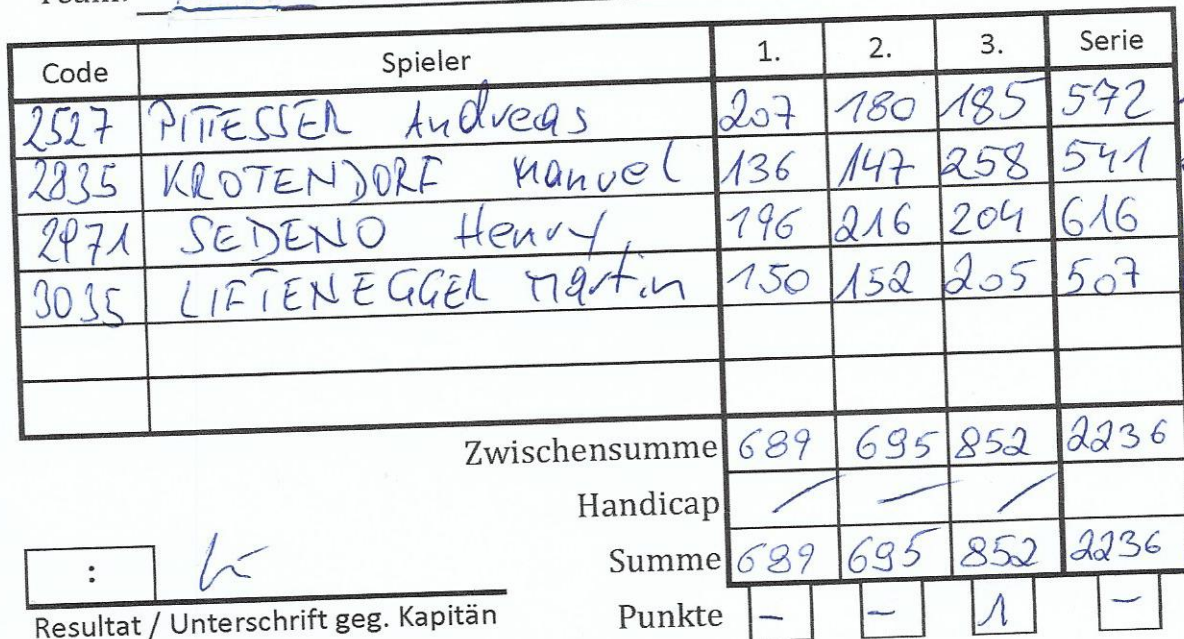 Code Spieler 1. 2. 3. Serie
2527 PITTESSER Andreas 207 180 185 572
2835 KROTENDORF Manuel 136 147 258 541
2971 SEDENO Henry 196 216 204 616
3035 LIFTENEGGER Martin 150 152 205 507
Zwischensumme 689 695 852 2236
Handicap / — /
Summe 689 695 852 2236
:
Resultat / Unterschrift geg. Kapitän Punkte – – 1 –